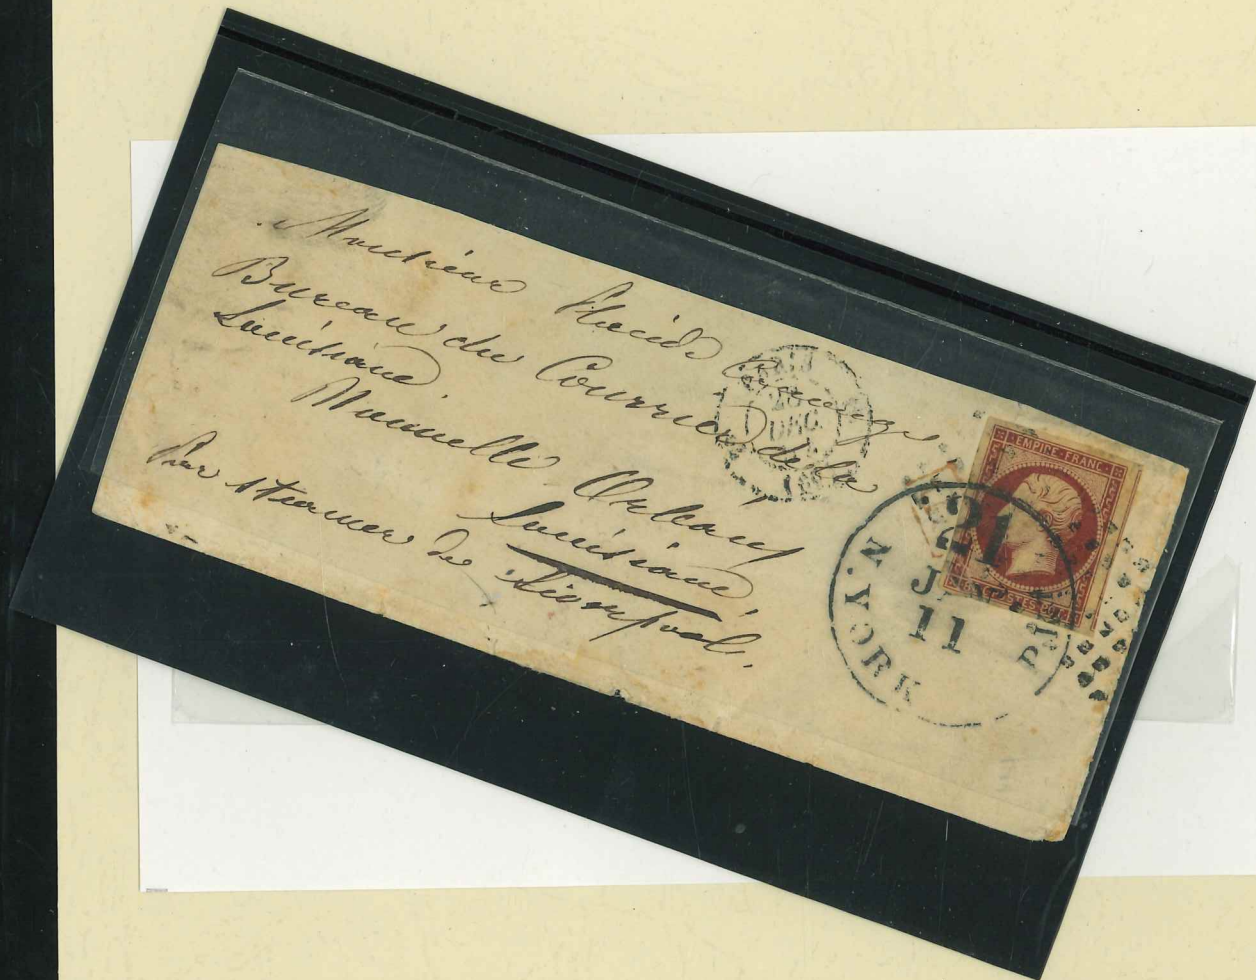 Monsieur Placide Canonge
Bureau du Courrier de la
Louisiane
Nouvelle Orléans
Louisiane
Par steamer de Liverpool.
EMPIRE FRANC
POSTES
N. YORK
21
JAN
11